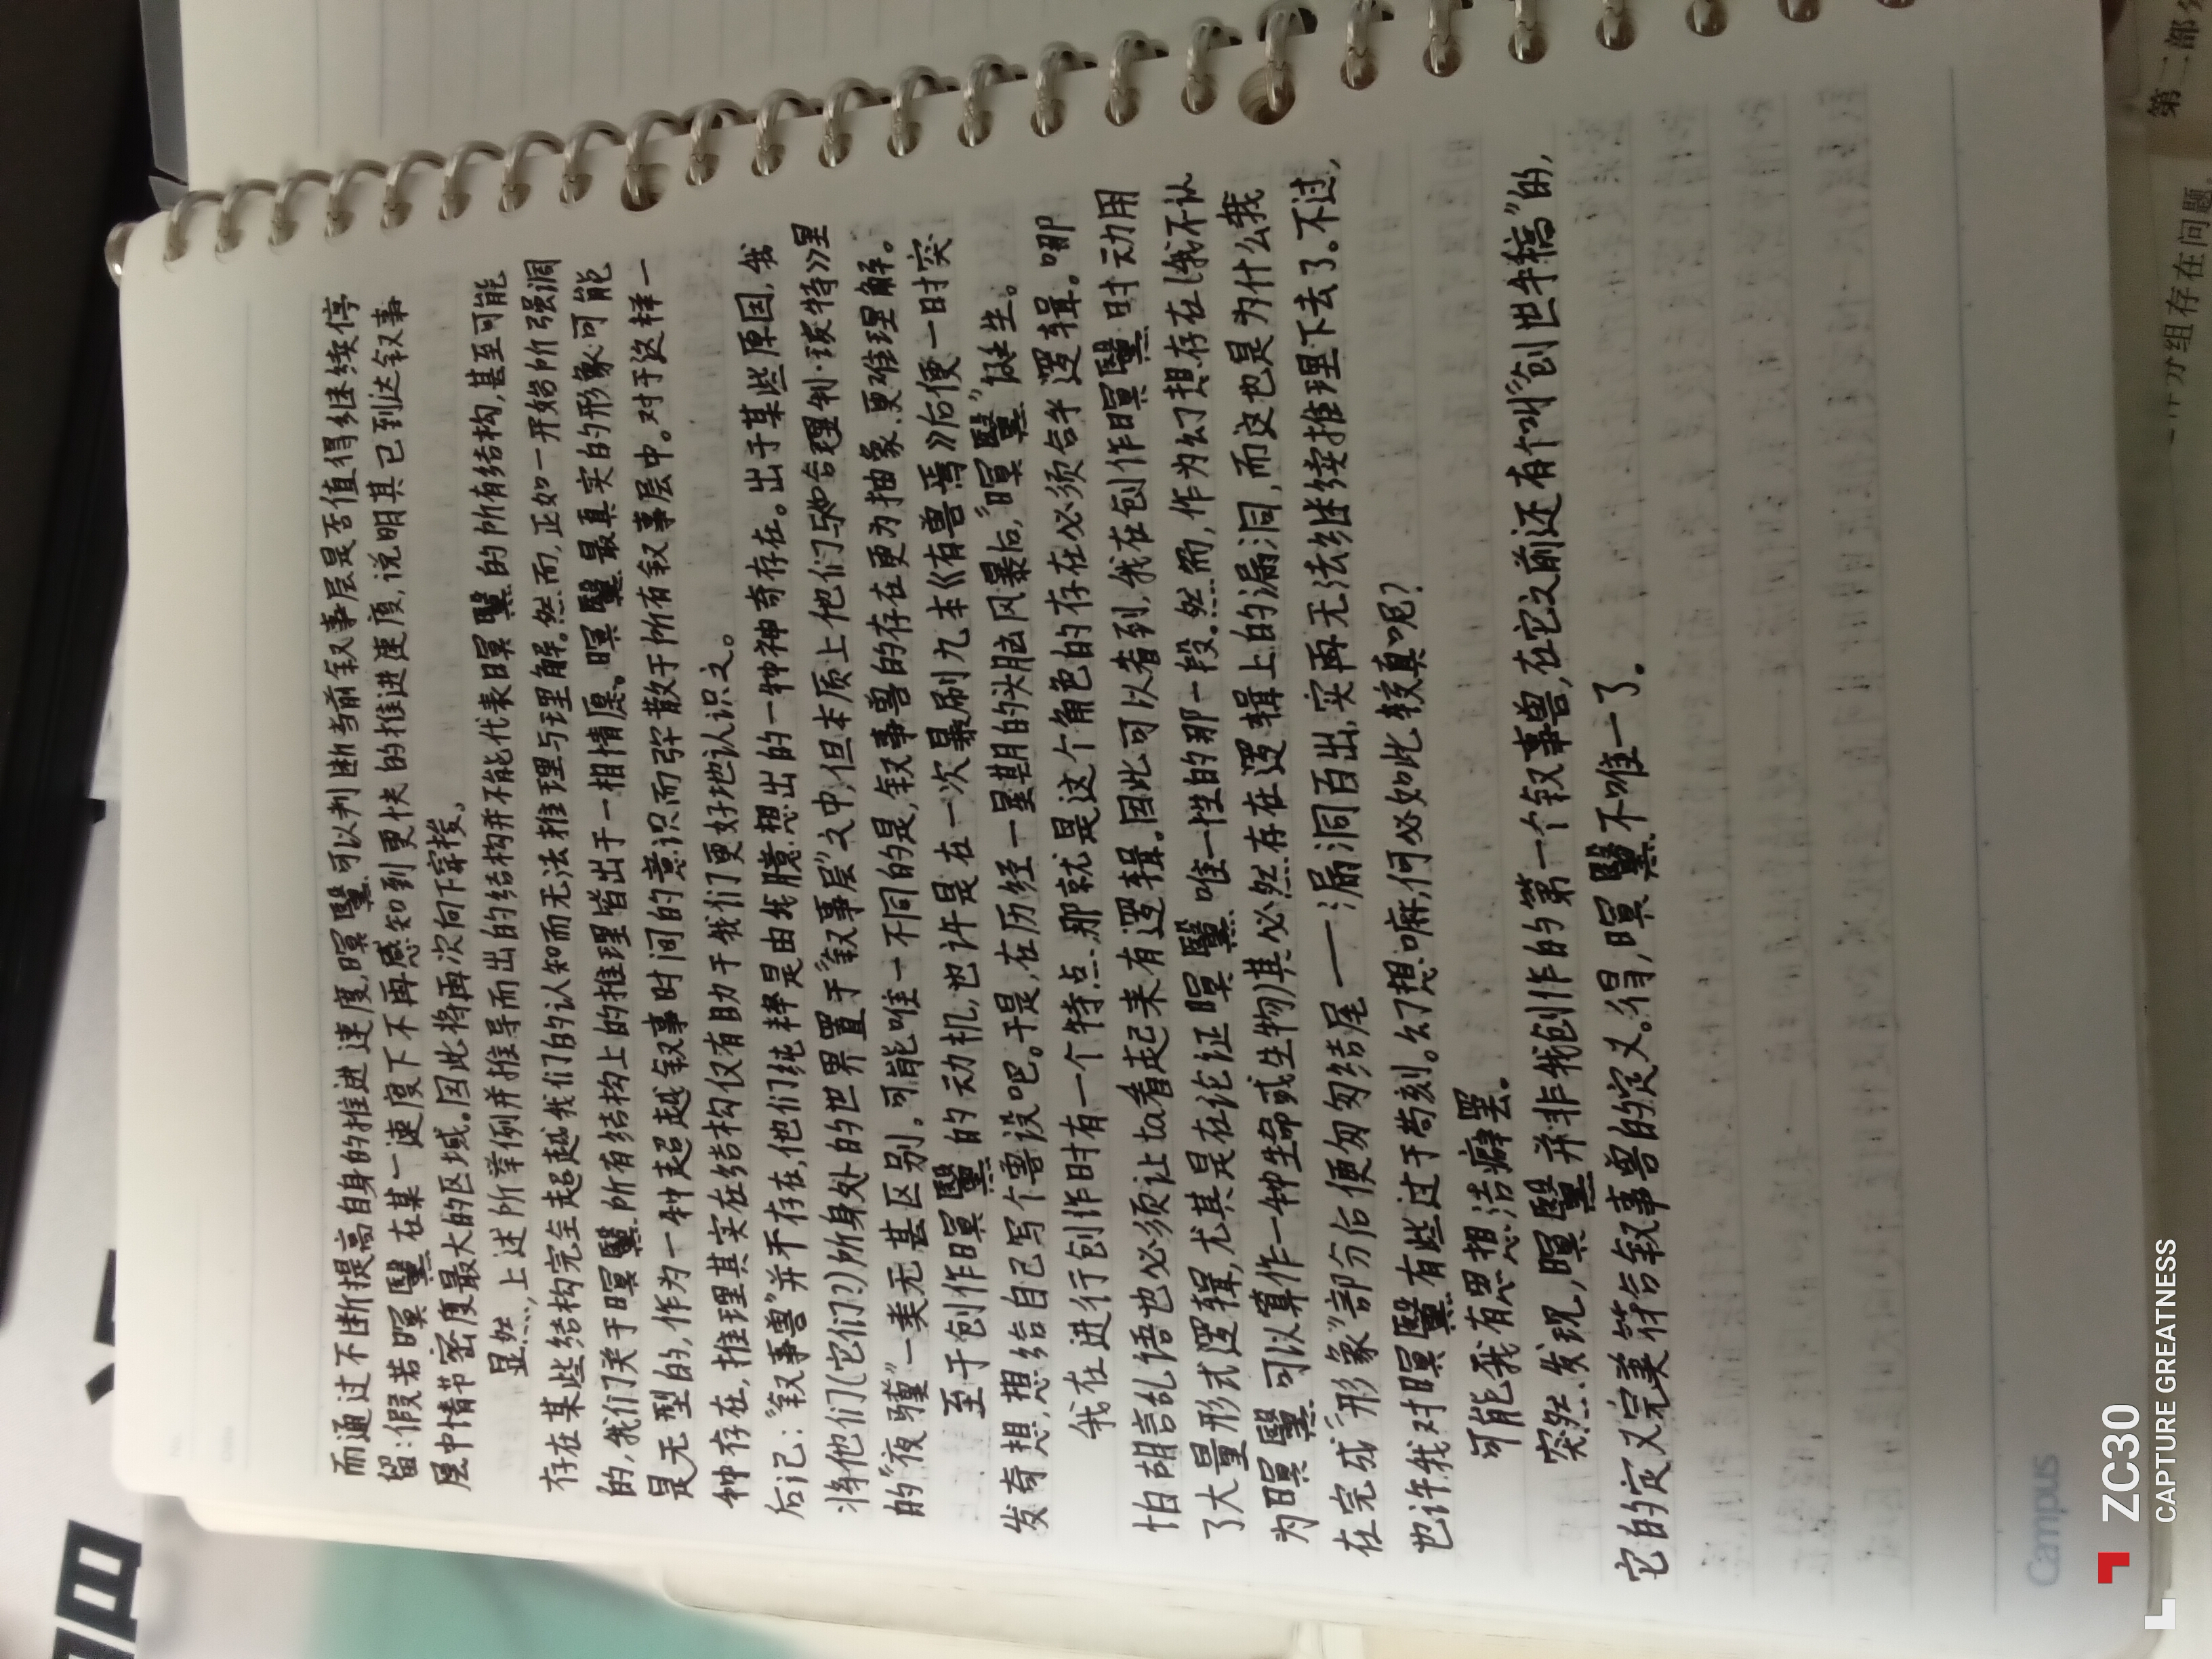 而通过不断提高自身的推进速度,暝毉可以判断当前叙事层是否值得继续停
留:假若暝毉在某一速度下不再感知到更快的推进速度,说明其已到达叙事
层中情节密度最大的区域。因此将再次向下穿梭。
显然,上述所举例并推导而出的结构并不能代表暝毉的所有结构,甚至可能
存在某些结构完全超越我们的认知而无法推理与理解。然而,正如一开始所强调
的,我们关于暝毉所有结构上的推理皆出于一相情愿。暝毉最真实的形象可能
是无型的,作为一种超越叙事时间的意识而弥散于所有叙事层中。对于这样一
种存在,推理其实在结构仅有助于我们更好地认识文。
后记:"叙事兽"并不存在,他们纯粹是由我臆想出的一种神奇存在。出于某些原因,我
将他们(它们?)所身处的世界置于"叙事层"文中,但本质上他们与《合理制·琰特》里
的"夜骓"一类无甚区别。可能唯一不同的是,叙事兽的存在更为抽象、更难理解。
至于创作暝毉的动机,也许是在一次暴刷九本《有兽焉》后便一时突
发奇想,想给自己写个兽设吧。于是,在历经一星期的头脑风暴后,"暝毉"诞生。
我在进行创作时有一个特点,那就是这个角色的存在必须合乎逻辑。哪
怕胡言乱语也必须让ta看起来有逻辑。因此可以看到,我在创作暝毉时动用
了大量形式逻辑,尤其是在论证暝毉唯一性的那一段。然而,作为幻想存在(我不认
为暝毉可以算作一种生命或生物)其必然存在逻辑上的漏洞,而这也是为什么我
在完成"形象"部分后便匆匆结尾——漏洞百出,实再无法继续推理下去了。不过,
也许我对暝毉有些过于苛刻。幻想嘛,何必如此较真呢?
可能我有思想洁癖罢。
突然发现,暝毉并非我创作的第一个叙事兽,在它之前还有个叫"创世手稿"的,
它的定义完美符合叙事兽的定义。得,暝毉不唯一了。
Campus
ZC30
CAPTURE GREATNESS
第二部分
分组存在问题